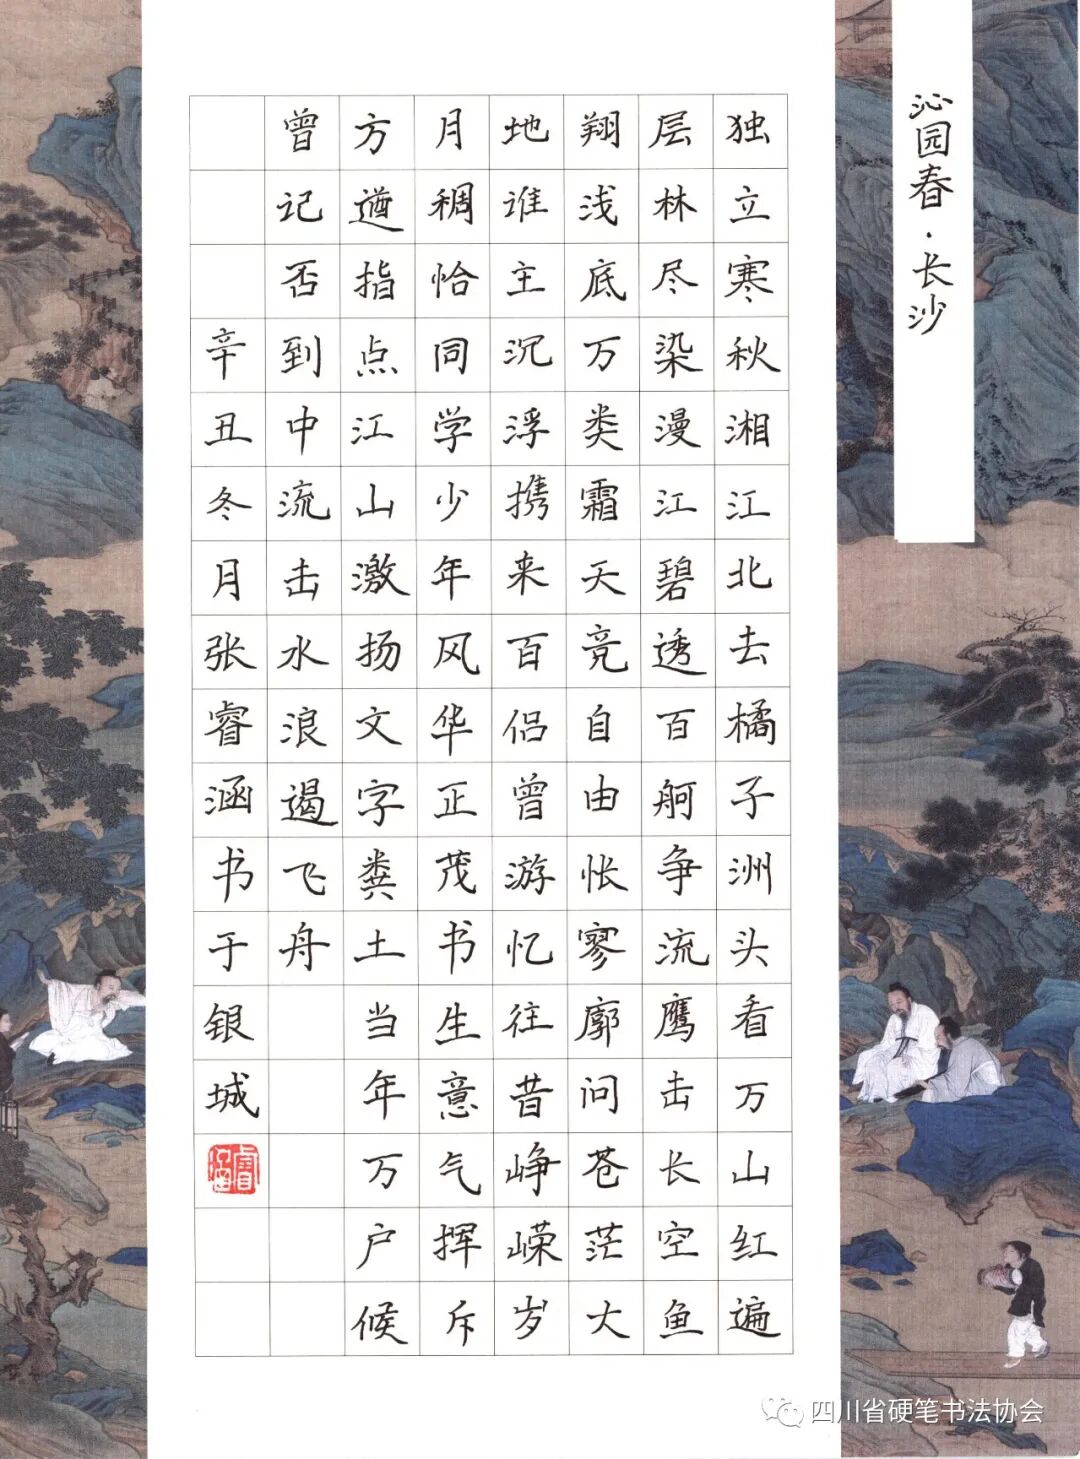 沁园春·长沙
独立寒秋湘江北去橘子洲头看万山红遍
层林尽染漫江碧透百舸争流鹰击长空鱼
翔浅底万类霜天竞自由怅寥廓问苍茫大
地谁主沉浮携来百侣曾游忆往昔峥嵘岁
月稠恰同学少年风华正茂书生意气挥斥
方遒指点江山激扬文字粪土当年万户候
曾记否到中流击水浪遏飞舟
辛丑冬月张睿涵书于银城
睿涵
四川省硬笔书法协会